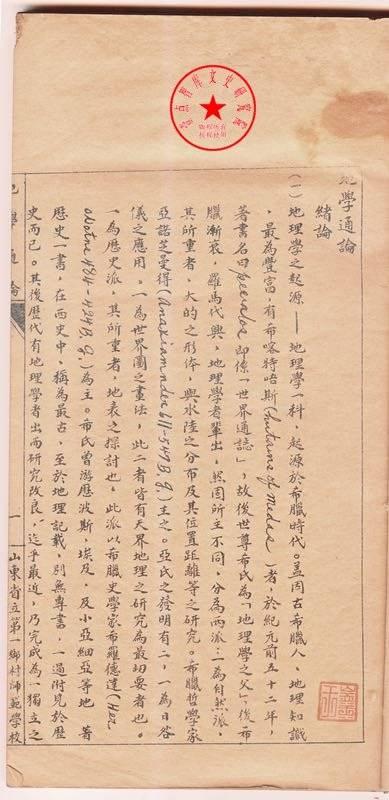 地學通論
緒論
(一)地理學之起源——地理學一科，起源於希臘時代。蓋因古希臘人，地理知識
，最為豐富，有希喀特唔斯(Hutains of Medea)者，於紀元前五十二年，
著書名曰Peevalos即係「世界通誌」，故後世尊希氏為「地理學之父」，後希
臘漸衰，羅馬代興，地理學者輩出，然因所主不同，分為兩派：一為自然派，
其所重者，大約之形体，與水陸之分布及其位置距離等之研究。希臘哲學家
亞諾芝曼得(Anaxiamnder 611-547B.C.)主之。亞氏之發明有二，一為日晷
儀之應用。一為世界圖之畫法，此二者皆有天界地理之研究為最切要者也。
一為歷史派，其所重者，地表之探討也，此派以希臘史學家希羅德達(Her-
odotne 484-424B.C.)為主。希氏曾游歷波斯，埃及，及小亞細亞等地，著
歷史一書，在西史中，稱為最古，至於地理記載，別無專書，一過附見於歷
史而已。其後歷代有地理學者出而研究改良，迄乎最近，乃完成為一獨立之
地學通論
一
山東省立第一鄉村師範學校